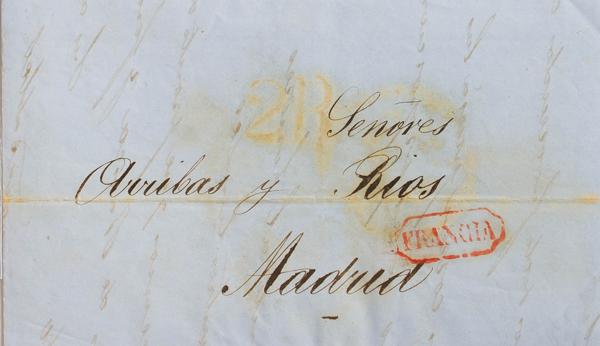 2R
Señores
Arribas y Rios
FRANCIA
Madrid